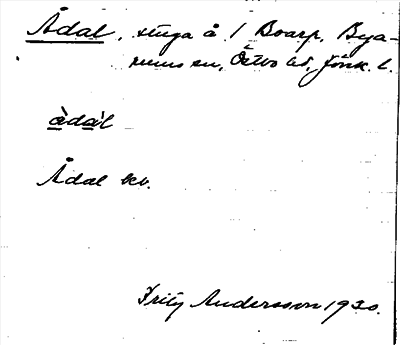 Ådal, stuga å 1 Boarp, Bya-
rums sn, Östbo hd, Jönk. l.
àdál
Ådal kv.
Fritz Andersson 1930.